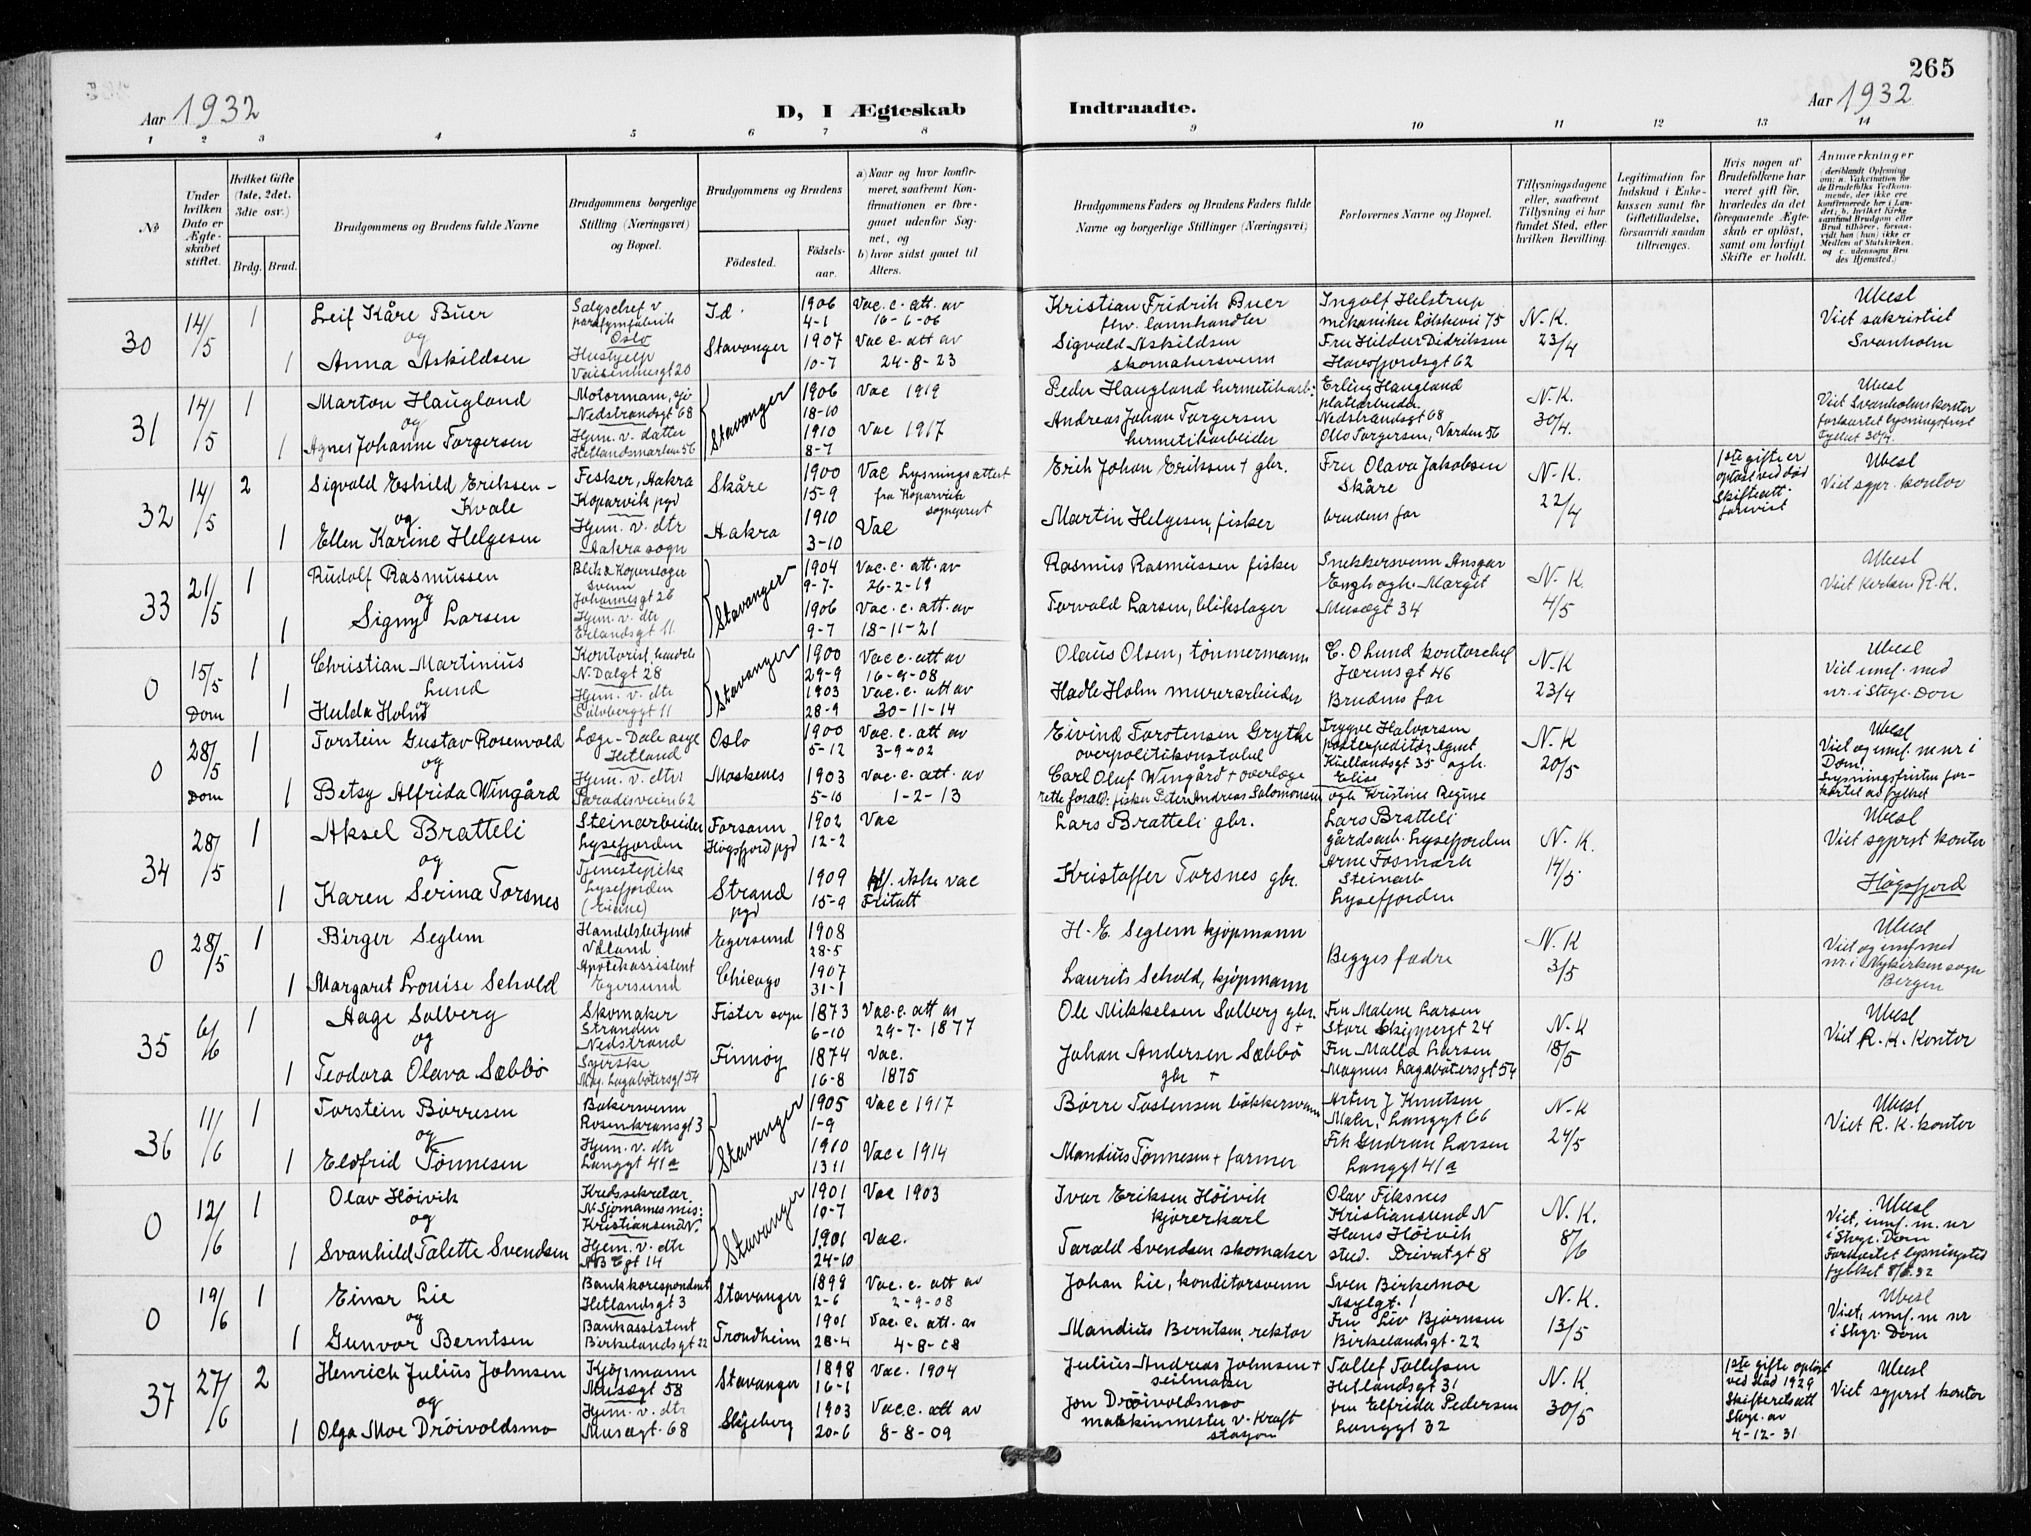 265
Aar 1932
D, I Ægteskab Indtraadte.
Aar 1932
1 2 3 4 5 6 7 8 9 10 11 12 13 14
No
Under hvilken Dato er Ægteskabet stiftet.
Hvilket Gifte (1ste, 2det, 3die osv.)
Brdg. Brud.
Brudgommens og Brudens fulde Navne
Brudgommens borgerlige Stilling (Næringsvei) og Bopæl.
Brudgommens og Brudens
Fødested.
Fødselsaar.
a) Naar og hvor konfirmeret, saafremt Konfirmationen er foregaaet udenfor Sognet, og
b) hvor sidst gaaet til Alters.
Brudgommens Faders og Brudens Faders fulde Navne og borgerlige Stillinger (Næringsvei)
Forlovernes Navne og Bopæl.
Tillysningsdagene eller, saafremt Tillysning ei har fundet Sted, efter hvilken Bevilling.
Legitimation for Indskud i Enkekassen samt for Giftetilladelse, forsaavidt saadan tiltrænges.
Hvis nogen af Brudefolkene har været gift før, hvorledes da det foregaaende Ægteskab er opløst, samt om lovligt Skifte er holdt.
Anmærkninger
(deriblandt Oplysning om: a. Vakcination for de Brudefolks Vedkommende, der ikke ere konfirmerede her i Landet; b. hvilket Kirkesamfund Brudgom eller Brud tilhører, forsaavidt han (hun) ikke er Medlem af Statskirken, og c. udensogns Brudes Hjemsted.)
30 14/5 1 Leif Kåre Buer
og
1 Anna Askildsen
Oslo
Vaisenhusgt 20
Id.
Stavanger
1906 4-1
1907 10-7
Vac. e. att. av 10-6-06
Vac e att av 24-8-23
Kristian Fridrik Buer
Sigvald Askildsen
skomakersvenn
Ingolf Helstrup
mekaniker 75
Fru Hildur Didriksen
Havsfjordsgt 62
N.K. 23/4
Ubesl
Viet sakristiet
Svanholm
31 14/5 1 Marton Haugland
og
1 Agnes Johanne Torgersen
Nedstrandsgt 68
Hjem. v. datter
Hetlandsmarken 56
Stavanger
1906 18-10
1910 8-7
Vac 1919
Vac 1917
Peder Haugland hermetikarb.
Andreas Johan Torgersen
hermetikarbeider
Erling Haugland
Nedstrandsgt 68
Olto Torgersen, Varden 56
N.K. 30/4.
Ubesl
Viet Svanholms kontor
forkortet lysningsfrist
fylket 30/4
32 14/5 2 Sigvald Eskild Eriksen - Kvale
og
1 Ellen Karine Helgesen
Fisker, Aakra
Koparvik pgd
Hjem. v. dtr
Aakra sogn
Skåre
Aakra
1900 15-9
1910 3-10
Vac Lysningsattest
fra Koparvik
sogneprest
Vac
Erik Johan Eriksen + gbr.
Martin Helgesen, fisker
Fru Olava Jakobsen
Skåre
brudens far
N.K. 22/4
1ste gifte er
opløst ved død
skifteatt.
forevist
Ubesl
Viet sgpr. kontor
33 21/5 1 Rudolf Rasmussen
og
1 Signy Larsen
Johannesgt 26
Hjem. v. dtr
Erlandsgt 11
Stavanger
1904 9-7-
1906 9-7
Vac. e. att. av 26-2-19
Vac. e. att. av 18-11-21
Rasmus Rasmussen fisker
Torvald Larsen, blikslager
Snekkersvenn Ansgar
Engh ogh. Margit
Musægt 34
N.K. 4/5
Ubesl
Viet kirken R.K.
0 15/5 Dom 1 Christian Martinius
Lund
1 Hulda Holm
N. Dalgt 28
Hjem. v. dtr
Sølvberggt 11
Stavanger
1900 29-9
1903 28-9
Vac e. att av 16-9-08
Vac. e. att av 30-11-14
Olaus Olsen, tømmermann
Hadle Holm murarbeider
C. O Lund kontorchef
Jærensgt 46
Brudens far
N.K 23/4
Ubesl
Viet innf. med
nr. i Stvgr. Dom
0 28/5 Dom 1 Torstein Gustav Rosenvold
og
1 Betsy Alfrida Wingård
Læge - Dale asyl
Hetland
Hjem. v. dtr
Paradisveien 62
Oslo
Moskenes
1900 5-12
1903 5-10
Vac. e. att av 3-9-02
Vac. e. att. av 1-2-13
Eivind Torstensen Grytke
overpolitikonstabel
Carl Olaf Wingård + overlege
rette forald: fisker Peter Andreas Salomonsen ogh Kristine Regine
Trygve Halvorsen
postexpeditør Egnet
Kiellandsgt 35 ogh.
Elise
N.K 20/5
Ubesl
Viet og innf. m nr i
Dom,
Lysningsfristen forkortet av fylket
34 28/5 1 Aksel Bratteli
og
1 Karen Serina Torsnes
Steinarbeider
Lysefjorden
Tjenestepike
Lysefjorden
Forsann
Høgsfjord pgd
Strand pgd
1902 12-2
1909 15-9
Vac
Iflf. ikke vac
Fritatt
Lars Bratteli gbr.
Kristoffer Torsnes gbr.
Lars Bratteli
gårdsarb. Lysefjorden
Arne Fosmark
Steinarb
Lysefjorden
N.K. 14/5
Ubesl
Viet sgprst kontor
Høgsfjord
0 28/5 1 Birger Seglem
1 Margaret Louise Sehold
Handelsbetjent
Apotekassistent
Egersund
Egersund
Chicago
1908 28-5
1907 31-1
H. E. Seglem kjøpmann
Laurits Sehold, kjøpmann
Begges fædre
N.K 3/5
Ubesl
Viet og innf med
nr. i Nykirken sogn
Bergen
35 6/6 1 Aage Solberg
og
1 Teodora Olava Sæbbø
Skomaker
Stranden
Nedstrand
Syerske
Mag. Lagabøtersgt 54
Fister sogn
Finnøy
1873 6-10
1874 16-8
Vac. e. att av 29-7-1877
Vac. 1875
Ole Mikkelsen Solberg gbr. +
Johan Andersen Sæbbø
gbr +
Fru Malene Larsen
Store Skippergt 24
Fru Malla Larsen
Magnus Lagabøtersgt 54
N.K 18/5
Ubesl
Viet R.K. kontor
36 11/6 1 Torstein Børresen
og
1 Elfrid Tønnesen
Bakersvenn
Rosenkransgt 3
Hjem. v. dtr
Langgt 41a
Stavanger
1905 1-9
1910 13 11
Vac e 1917
Vac e 1914
Børre Tostensen bakkersvenn
Mandius Tønnesen + farmer
Artur J Knutsen
Maler, Langgt 66
Frk Gudrun Larsen
Langgt 41a
N.K 24/5
Ubesl
Viet R.K. kontor
0 12/6 1 Olav Høivik
og
1 Svanhild Talette Svendsen
Kredssekretær
N. Sjømannsmis:
Kristiansund N.
Hjem. v. dtr
Stavanger
1901 10-7
1901 24-10
Vac 1903
Vac.
Ivar Eriksen Høivik
kjørerkarl
Tarald Svendsen skomaker
Olav Fiksnes
Kristiansund N
Hans Høivik
stud. Privatgt 8
N.K. 8/6
Ubesl
Viet, innf. m. nr
i Stvgr. Dom
Forkortet lysningstid
fylket 8/6.32
0 19/6 1 Einar Lie
og
1 Gunvor Berntsen
Bankkorespondent
Hetlandsgt 3
Bankassistent
Birkelandsgt 22
Stavanger
Trondheim
1898 2-6
1901 28-4
Vac. e. att av 2-9-08
Vac. e. att. av 4-8-08
Johan Lie, konditorsvenn
Mandius Berntsen, rektor
Sven Birkemoe
Asylgt. 1
Fru Liv Bjørnsen
Birkelandsgt-22
N.K. 13/5
Ubesl
Viet, innf. m nr
i Stvgr. Dom
37 27/6 2 Henrich Julius Johnsen
og
1 Olga Moe Drøivoldsmo
Kjøpmann
Musægt 58
Hjem. v. dtr
Musægt. 68
Stavanger
Skjeberg
1898 16-1
1903 20-6
Vac. 1904
Vac. e. att av 8-8-09
Julius Andreas Johnsen +
seilmaker
Jon Drøivoldsmo
maskinmester v. Kraft
stasjon
Tollef Tollefsen
Hetlandsgt 31
Fru Elfrida Pedersen
Langgt 32
N.K. 30/5
1ste gifte opløst
ved død 1929
Skifteretsatt
Stvgr. av
4-12-31
Ubesl
Viet sgprst kontor